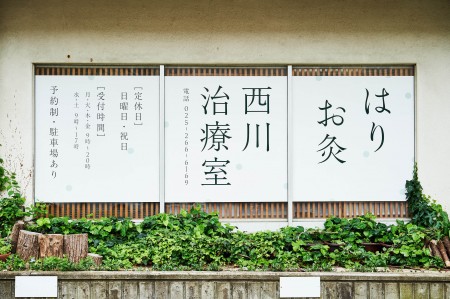 はり
お灸
西川
治療室
電話 025-266-8169
［定休日］
日曜日・祝日
［受付時間］
月・火・木・金 9時〜20時
水・土 9時〜17時
予約制・駐車場あり